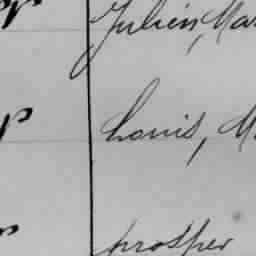 Julien, Ma
Louis, M
prosper